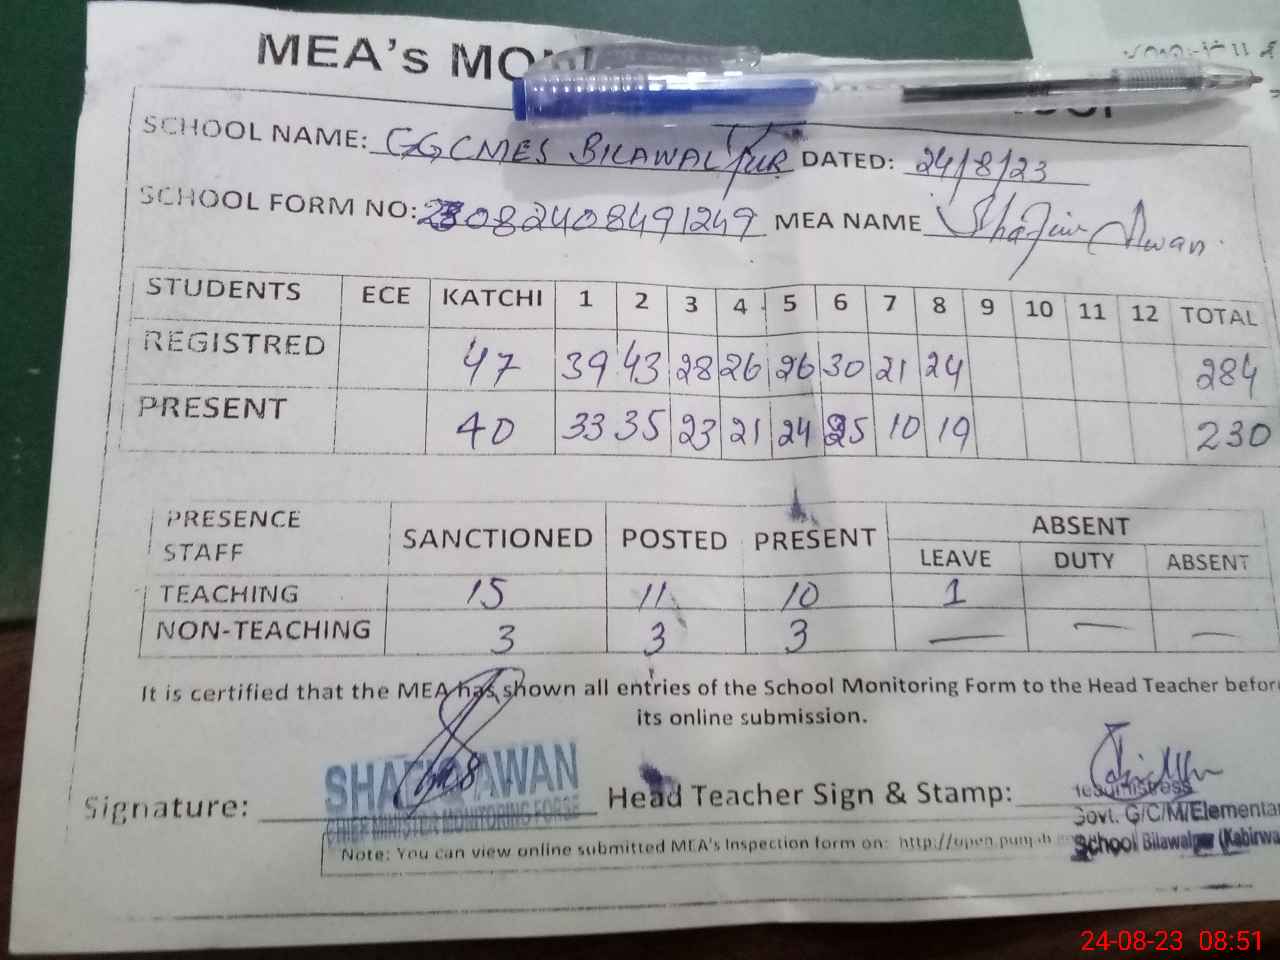 MEA's MON
SCHOOL NAME: GGCMES BILAWAL PUR DATED: 24/8/23
SCHOOL FORM NO: 23082408491249 MEA NAME Shafiq Awan
STUDENTS ECE KATCHI 1 2 3 4 5 6 7 8 9 10 11 12 TOTAL
REGISTRED 47 39 43 28 26 26 30 21 24 284
PRESENT 40 33 35 23 21 24 25 10 19 230
PRESENCE STAFF SANCTIONED POSTED PRESENT ABSENT
LEAVE DUTY ABSENT
TEACHING 15 11 10 1
NON-TEACHING 3 3 3 — — —
It is certified that the MEA has shown all entries of the School Monitoring Form to the Head Teacher before
its online submission.
SHAFIQ AWAN
CHIEF MINISTER MONITORING FORCE
Signature: Head Teacher Sign & Stamp:
Headmistress
Govt. G/C/M/Elementa
School Bilawalpur (Kabirwa
Note: You can view online submitted MEA's Inspection form on: http://open.punjab
24-08-23 08:51